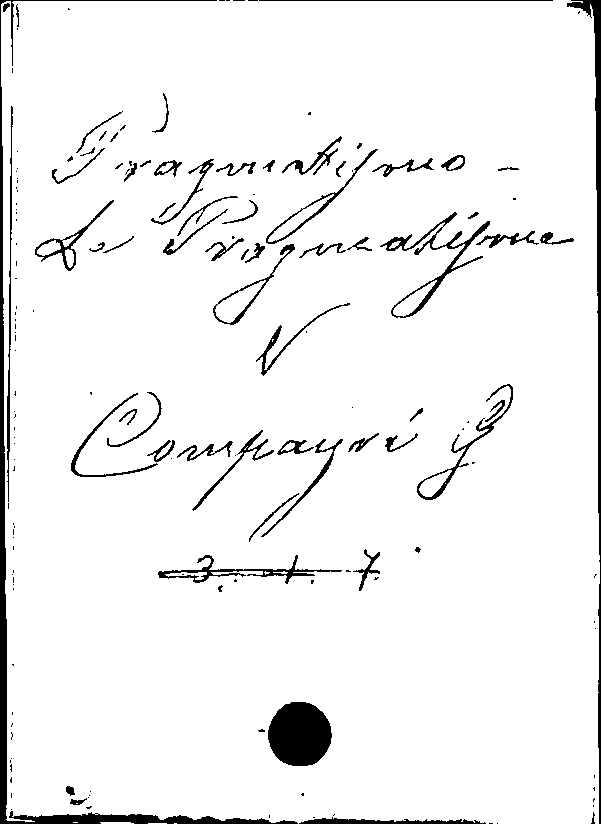 Pragmatismo -
Le Pragmatisme
V
Compayré G
3. 1. 7.